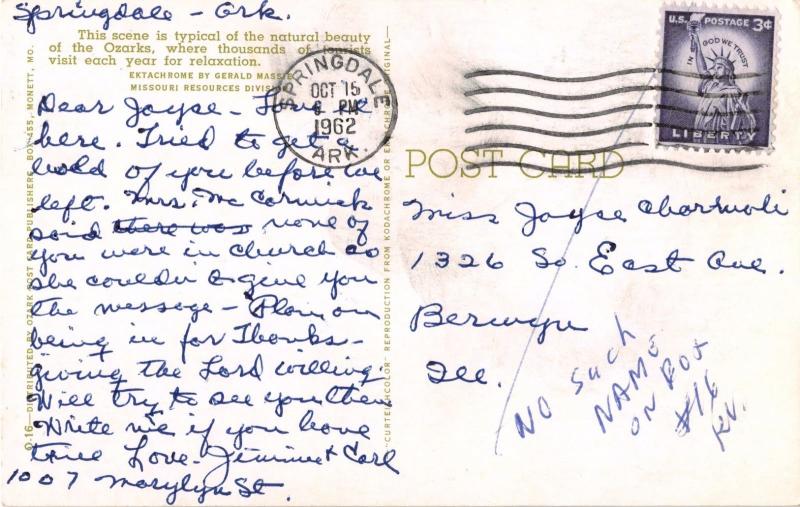 Springdale - Ark.
This scene is typical of the natural beauty
of the Ozarks, where thousands of tourists
visit each year for relaxation.
EKTACHROME BY GERALD MASSIE
MISSOURI RESOURCES DIVISION
Dear Joyse - 
here. Tried to get a
hold of you before we
left. Mrs. Mc Cormick
said there was none of
you were in church so
she couldn't give you
the message - Plan on
being in for Thanks-
giving the Lord willing.
Will try to see you then.
Write me if you have
time Love - Jimmie & Carl
1007 Marylyn St.
O-16—DISTRIBUTED BY OZARK POST CARD PUBLISHERS, BOX 455, MONETT, MO.
"CURTEICHCOLOR" REPRODUCTION FROM KODACHROME OR EKTACHROME ORIGINAL—
SPRINGDALE
OCT 15
PM
1962
ARK.
U.S. POSTAGE 3¢
IN GOD WE TRUST
LIBERTY
POST CARD
Miss Joyse
1326 So. East Ave.
Berwyn
Ill.
NO SUCH
NAME
ON BOX
#16